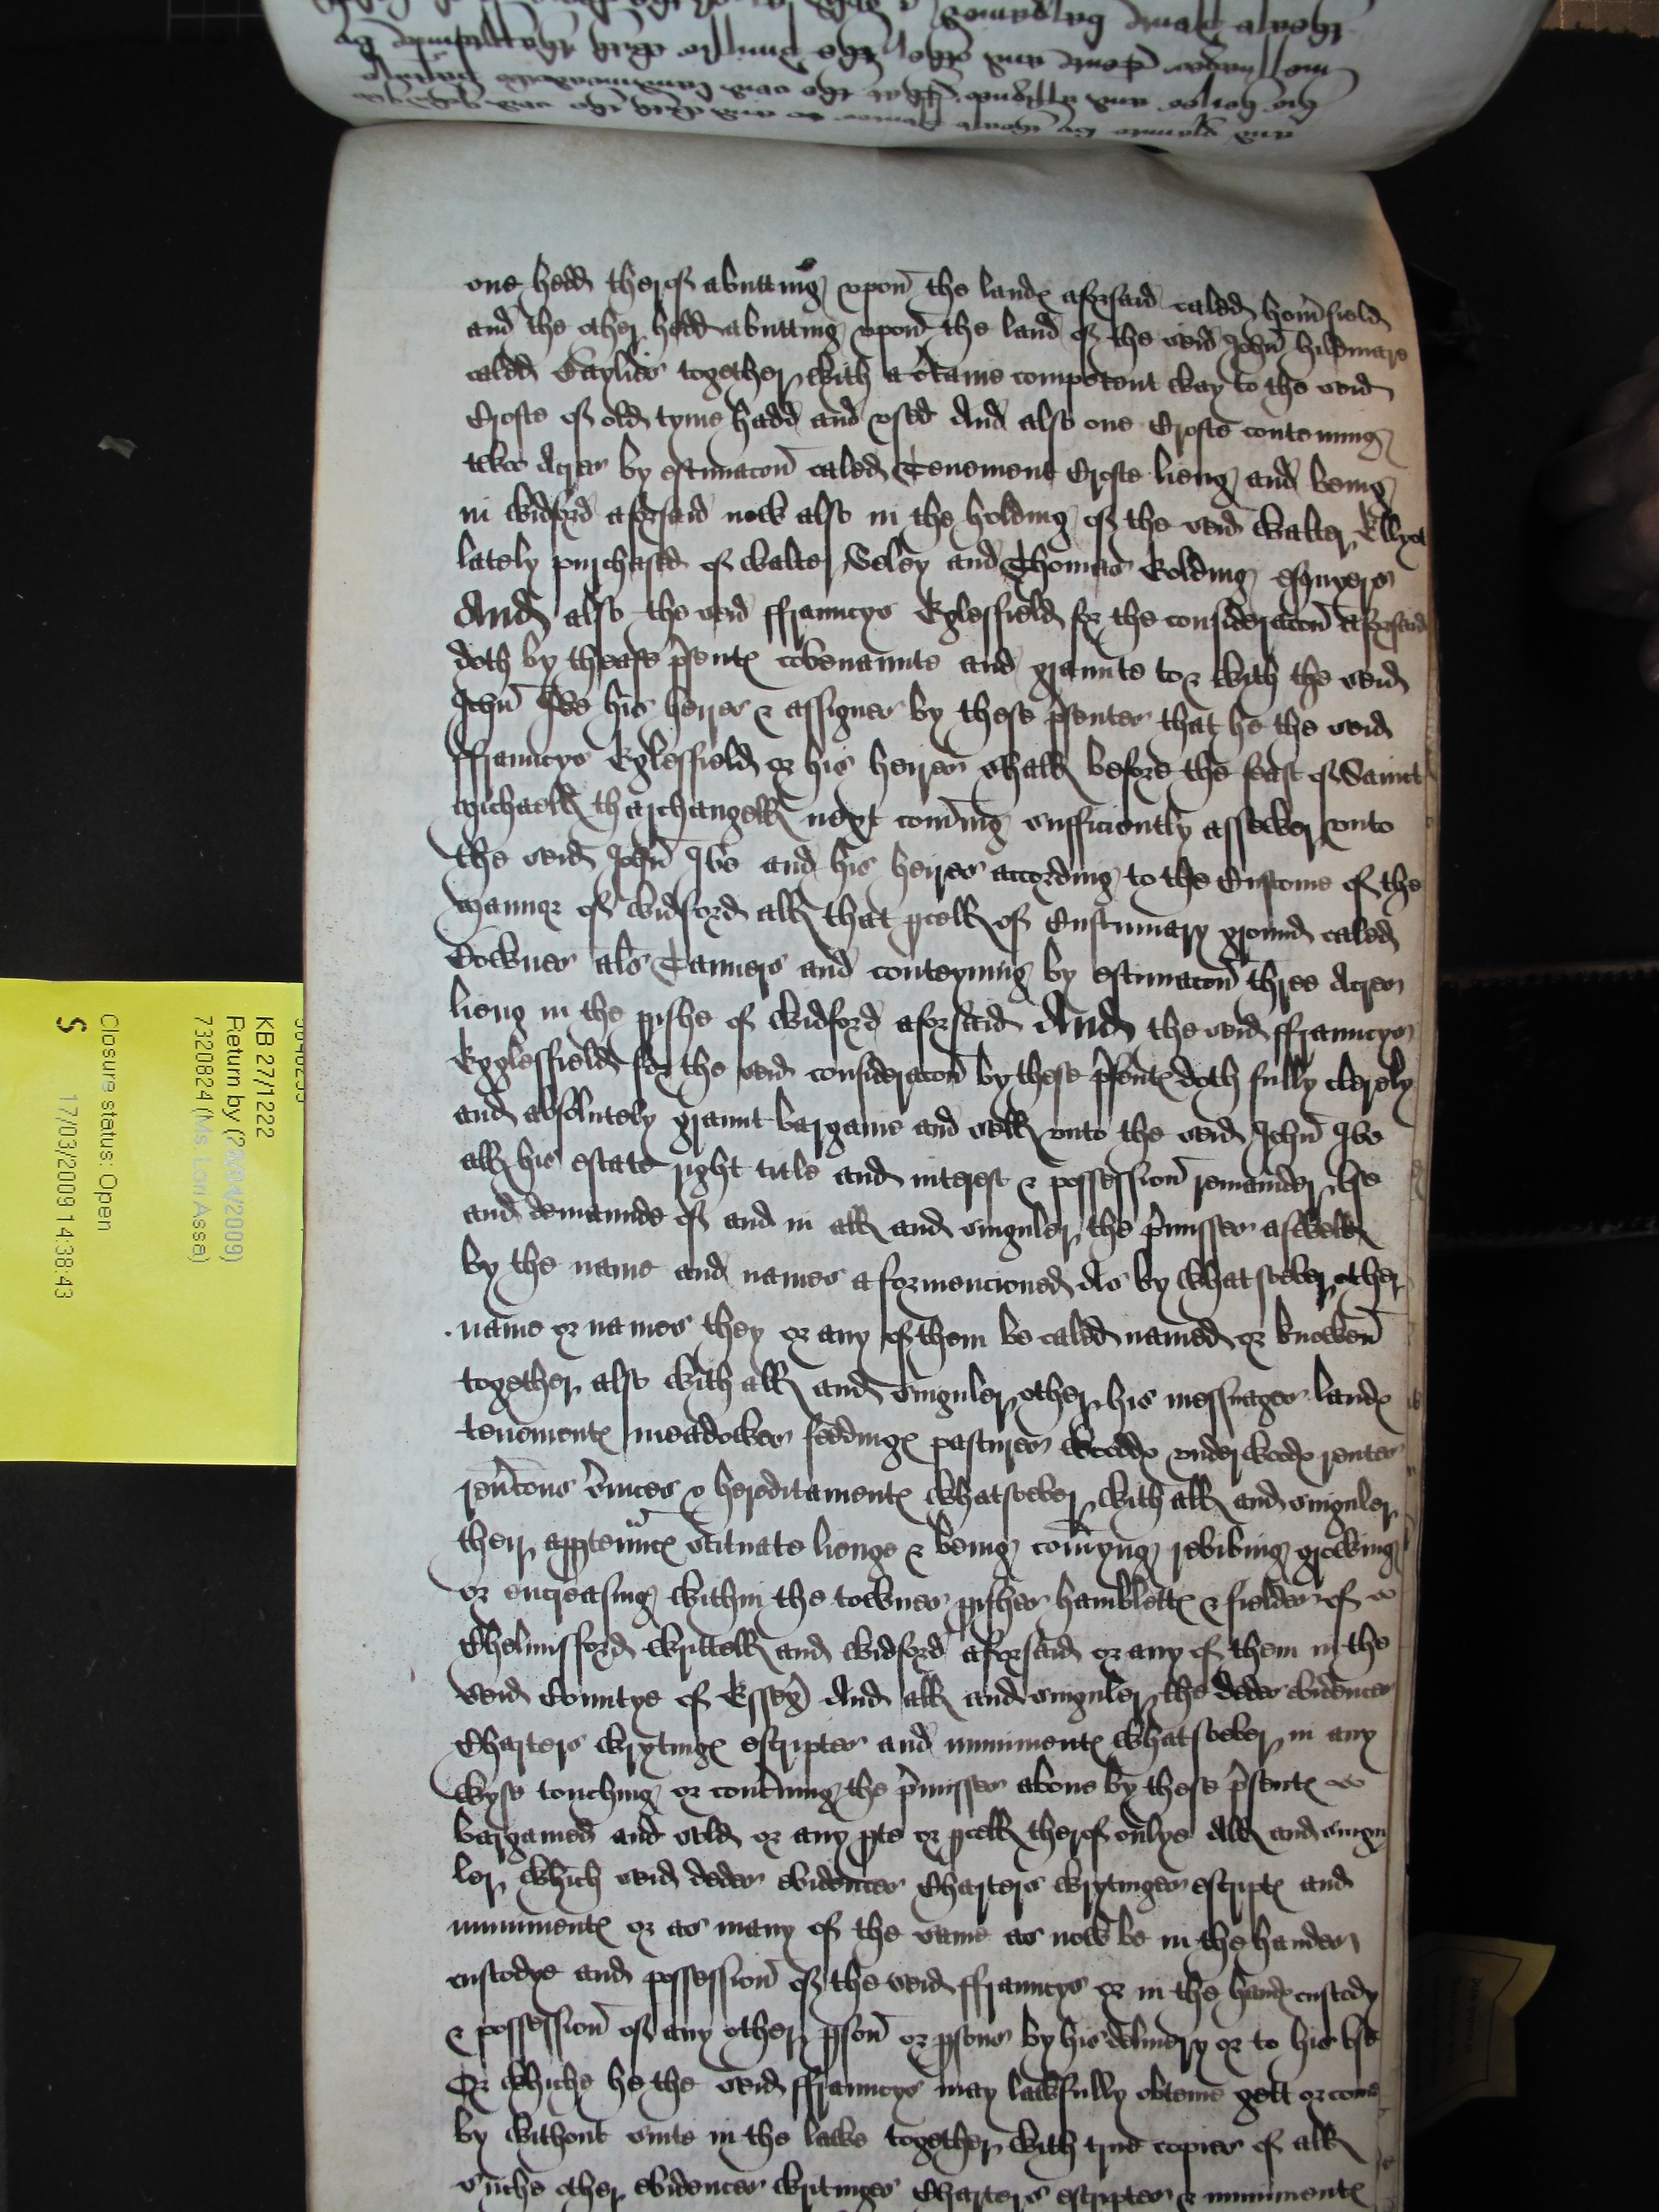 one hedd therof abutting upon the landes aforsaid caled homfield
and the other hedd abutting upon the land of the seid John hildmare
caled Baylies together with a certaine competent way to the seid
Crofte of old tyme hadd and used And also one Crofte conteining
twoo Acres by estimacon caled Tenement Crofte lieng and being
in widford aforsaid now also in the holding of the seid walter Ellyot
lately purchased of walter Seley and Thomas Golding esquyers
And also the seid ffrauncys Eglesfield for the consideracon aforsaid
doth by thease psentes covenaunte and graunte to & with the seid
John Ive his heires & assignes by these psentes that he the seid
ffrauncys Eglesfield or his heires shall before the feast of Saint
Michaell tharchangell next coming sufficiently assewer unto
the seid John Ive and his heires according to the Custome of the
Mannor of widford all that pcell of Custumary ground caled
Downes als Tanners and conteyning by estimacon three Acres
lieng in the pishe of widford aforsaid And the seid ffrauncys
Egglesfield for the seid consideracon by these psentes doth fully clerely
and absolutely graunt bargaine and sell unto the seid John Ive
all his estate right title and interest & possession remainder use
and demaunde of and in all and singuler the pmisses aswell
by the name and names aformencioned As by whatsoever other
name or names they or any of them be caled named or knowen
together also with all and singuler other his messuages landes
tenementes meadowes feedinges pastures woodes underwoodes rentes
revcons svices & hereditamentes whatsoever with all and singuler
their apptenncs scituate lienge & being comyng reviving growing
or encreasing within the townes pishes hamblettes & fieldes of
Chelmisford writtell and widford aforsaid or any of them in the
seid Countye of Essex And all and singuler the dedes evidences
Charters wrytinges escriptes and munimentes whatsoever in any
wyse touching or concning the pmisses above by these psentes
bargained and sold or any pte or pcell therof onlye All and singu
ler which seid dedes evidences Charters wrytinges escriptes and
munimentes or as many of the same as now be in the handes
custodye and possession of the seid ffrauncys or in the handes custody
& possession of any other pson or psons by his delivery or to his use
Or whiche he the seid ffrauncys may lawfully obteine gett or come
by without suite in the lawe together with true copies of all
suche other evidences writinges Charters escriptes & munimentes
KB 27/1222
Return by (28/04/2009)
7320824 (Ms Lori Asse)
Closure status: Open
S 17/03/2009 14:38:43